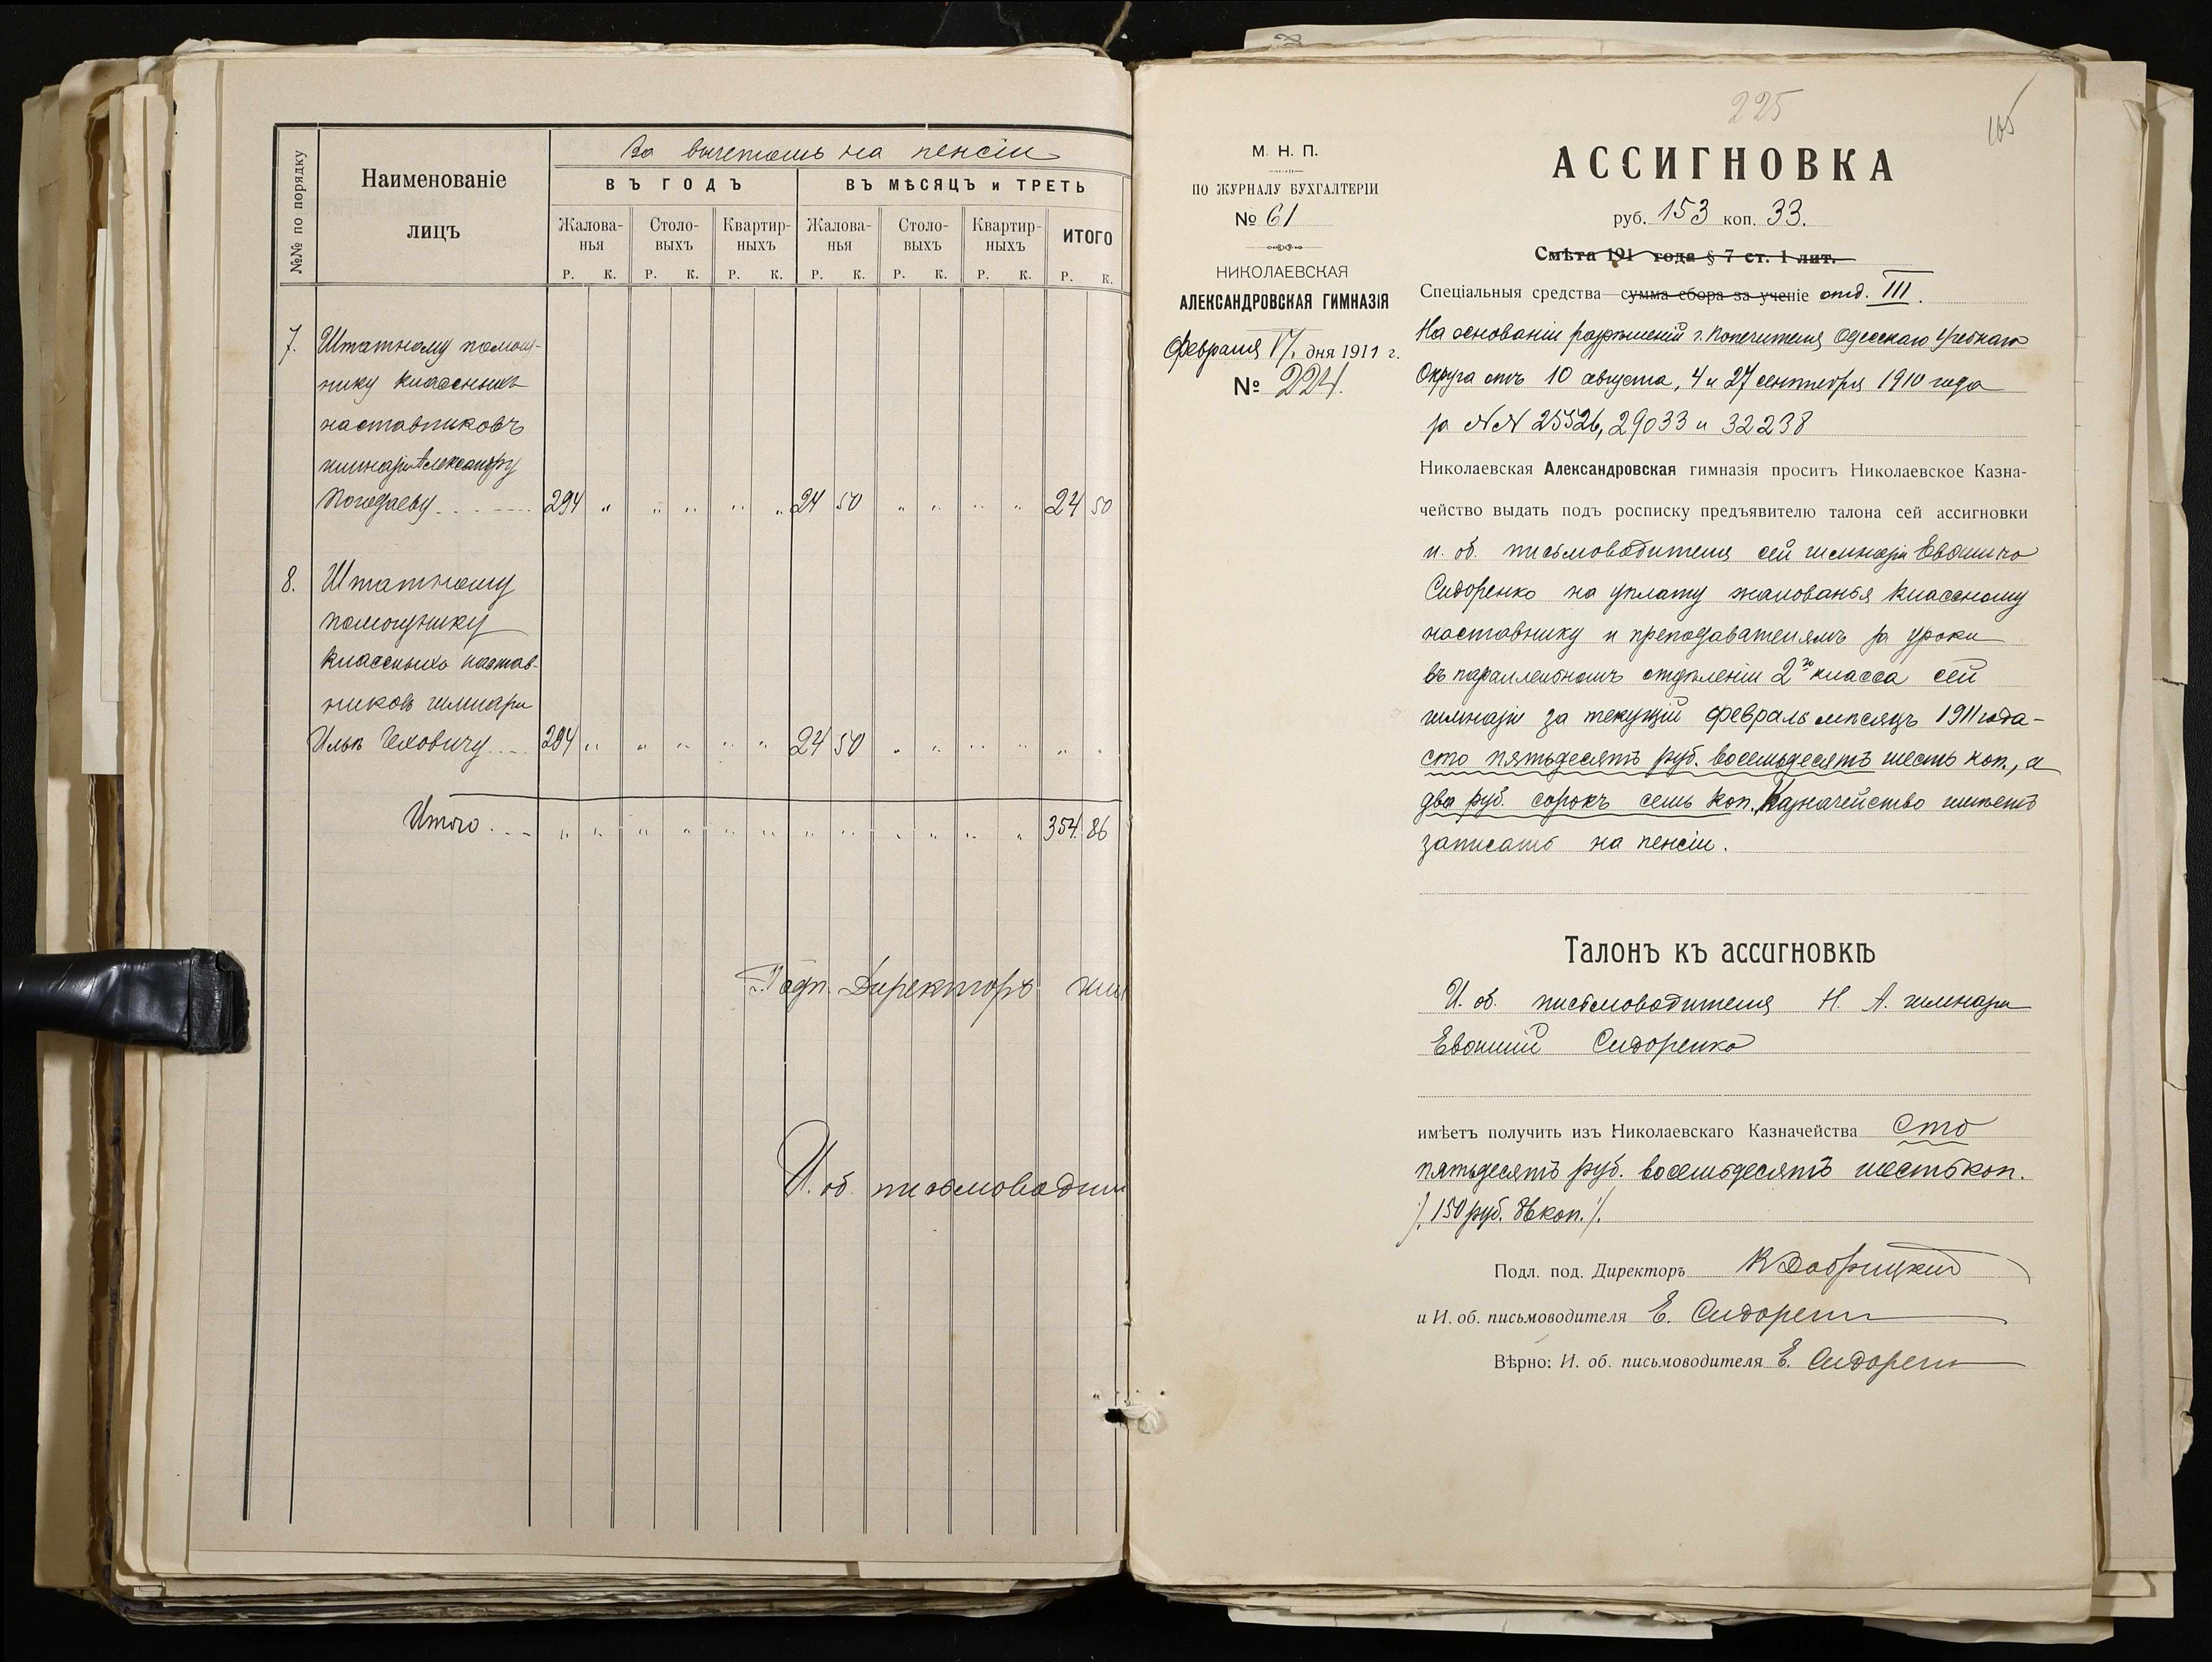 №№ по порядку
Наименованіе
лицъ
За вычетомъ на пенсіи
ВЪ ГОДЪ
ВЪ МѢСЯЦЪ и ТРЕТЬ
Жалова-
нья
Столо-
выхъ
Квартир-
ныхъ
Жалова-
нья
Столо-
выхъ
Квартир-
ныхъ
ИТОГО
Р. К. Р. К. Р. К. Р. К. Р. К. Р. К. Р. К.
7. Штатному помощ-
нику классныхъ
наставниковъ
гимназіи Александру
Погодаеву 294 " " " " " 24 50 " " " " 24 50
8. Штатному
помощнику
классныхъ настав-
никовъ гимназіи
Ильѣ Чеховичу 294 " " " " " 24 50 " " " " " "
Итого " " " " " " " " " " " " 354 86
Подп. Директоръ гим
И. об. письмоводит
225
105
М. Н. П.
ПО ЖУРНАЛУ БУХГАЛТЕРІИ
№ 61
НИКОЛАЕВСКАЯ
АЛЕКСАНДРОВСКАЯ ГИМНАЗІЯ
Февраля 17 дня 1911 г.
№ 224.
АССИГНОВКА
руб. 153 коп. 33.
Смѣта 191 года § 7 ст. 1 лит.
Спеціальныя средства сумма сбора за ученіе отд. III.
На основаніи разрѣшеній г. Попечителя Одесскаго Учебнаго
Округа отъ 10 августа, 4 и 27 сентября 1910 года
за №№ 25526, 29033 и 32238
Николаевская Александровская гимназія проситъ Николаевское Казна-
чейство выдать подъ росписку предъявителю талона сей ассигновки
и. об. письмоводителя сей гимназіи Евфимію
Сидоренко на уплату жалованья классному
наставнику и преподавателямъ за уроки
въ параллельномъ отдѣленіи 2го класса сей
гимназіи за текущій февраль мѣсяцъ 1911 года -
сто пятьдесятъ руб. восемьдесятъ шесть коп., а
два руб. сорокъ семь коп. Казначейство имѣетъ
записать на пенсіи.
Талонъ къ ассигновкѣ
И. об. письмоводителя Н. А. гимназіи
Евфимій Сидоренко
имѣетъ получить изъ Николаевскаго Казначейства сто
пятьдесятъ руб. восемьдесятъ шесть коп.
/. 150 руб. 86 коп. /.
Подл. под. Директоръ В Добрицкій
и И. об. письмоводителя Е. Сидоренко
Вѣрно: И. об. письмоводителя Е. Сидоренко